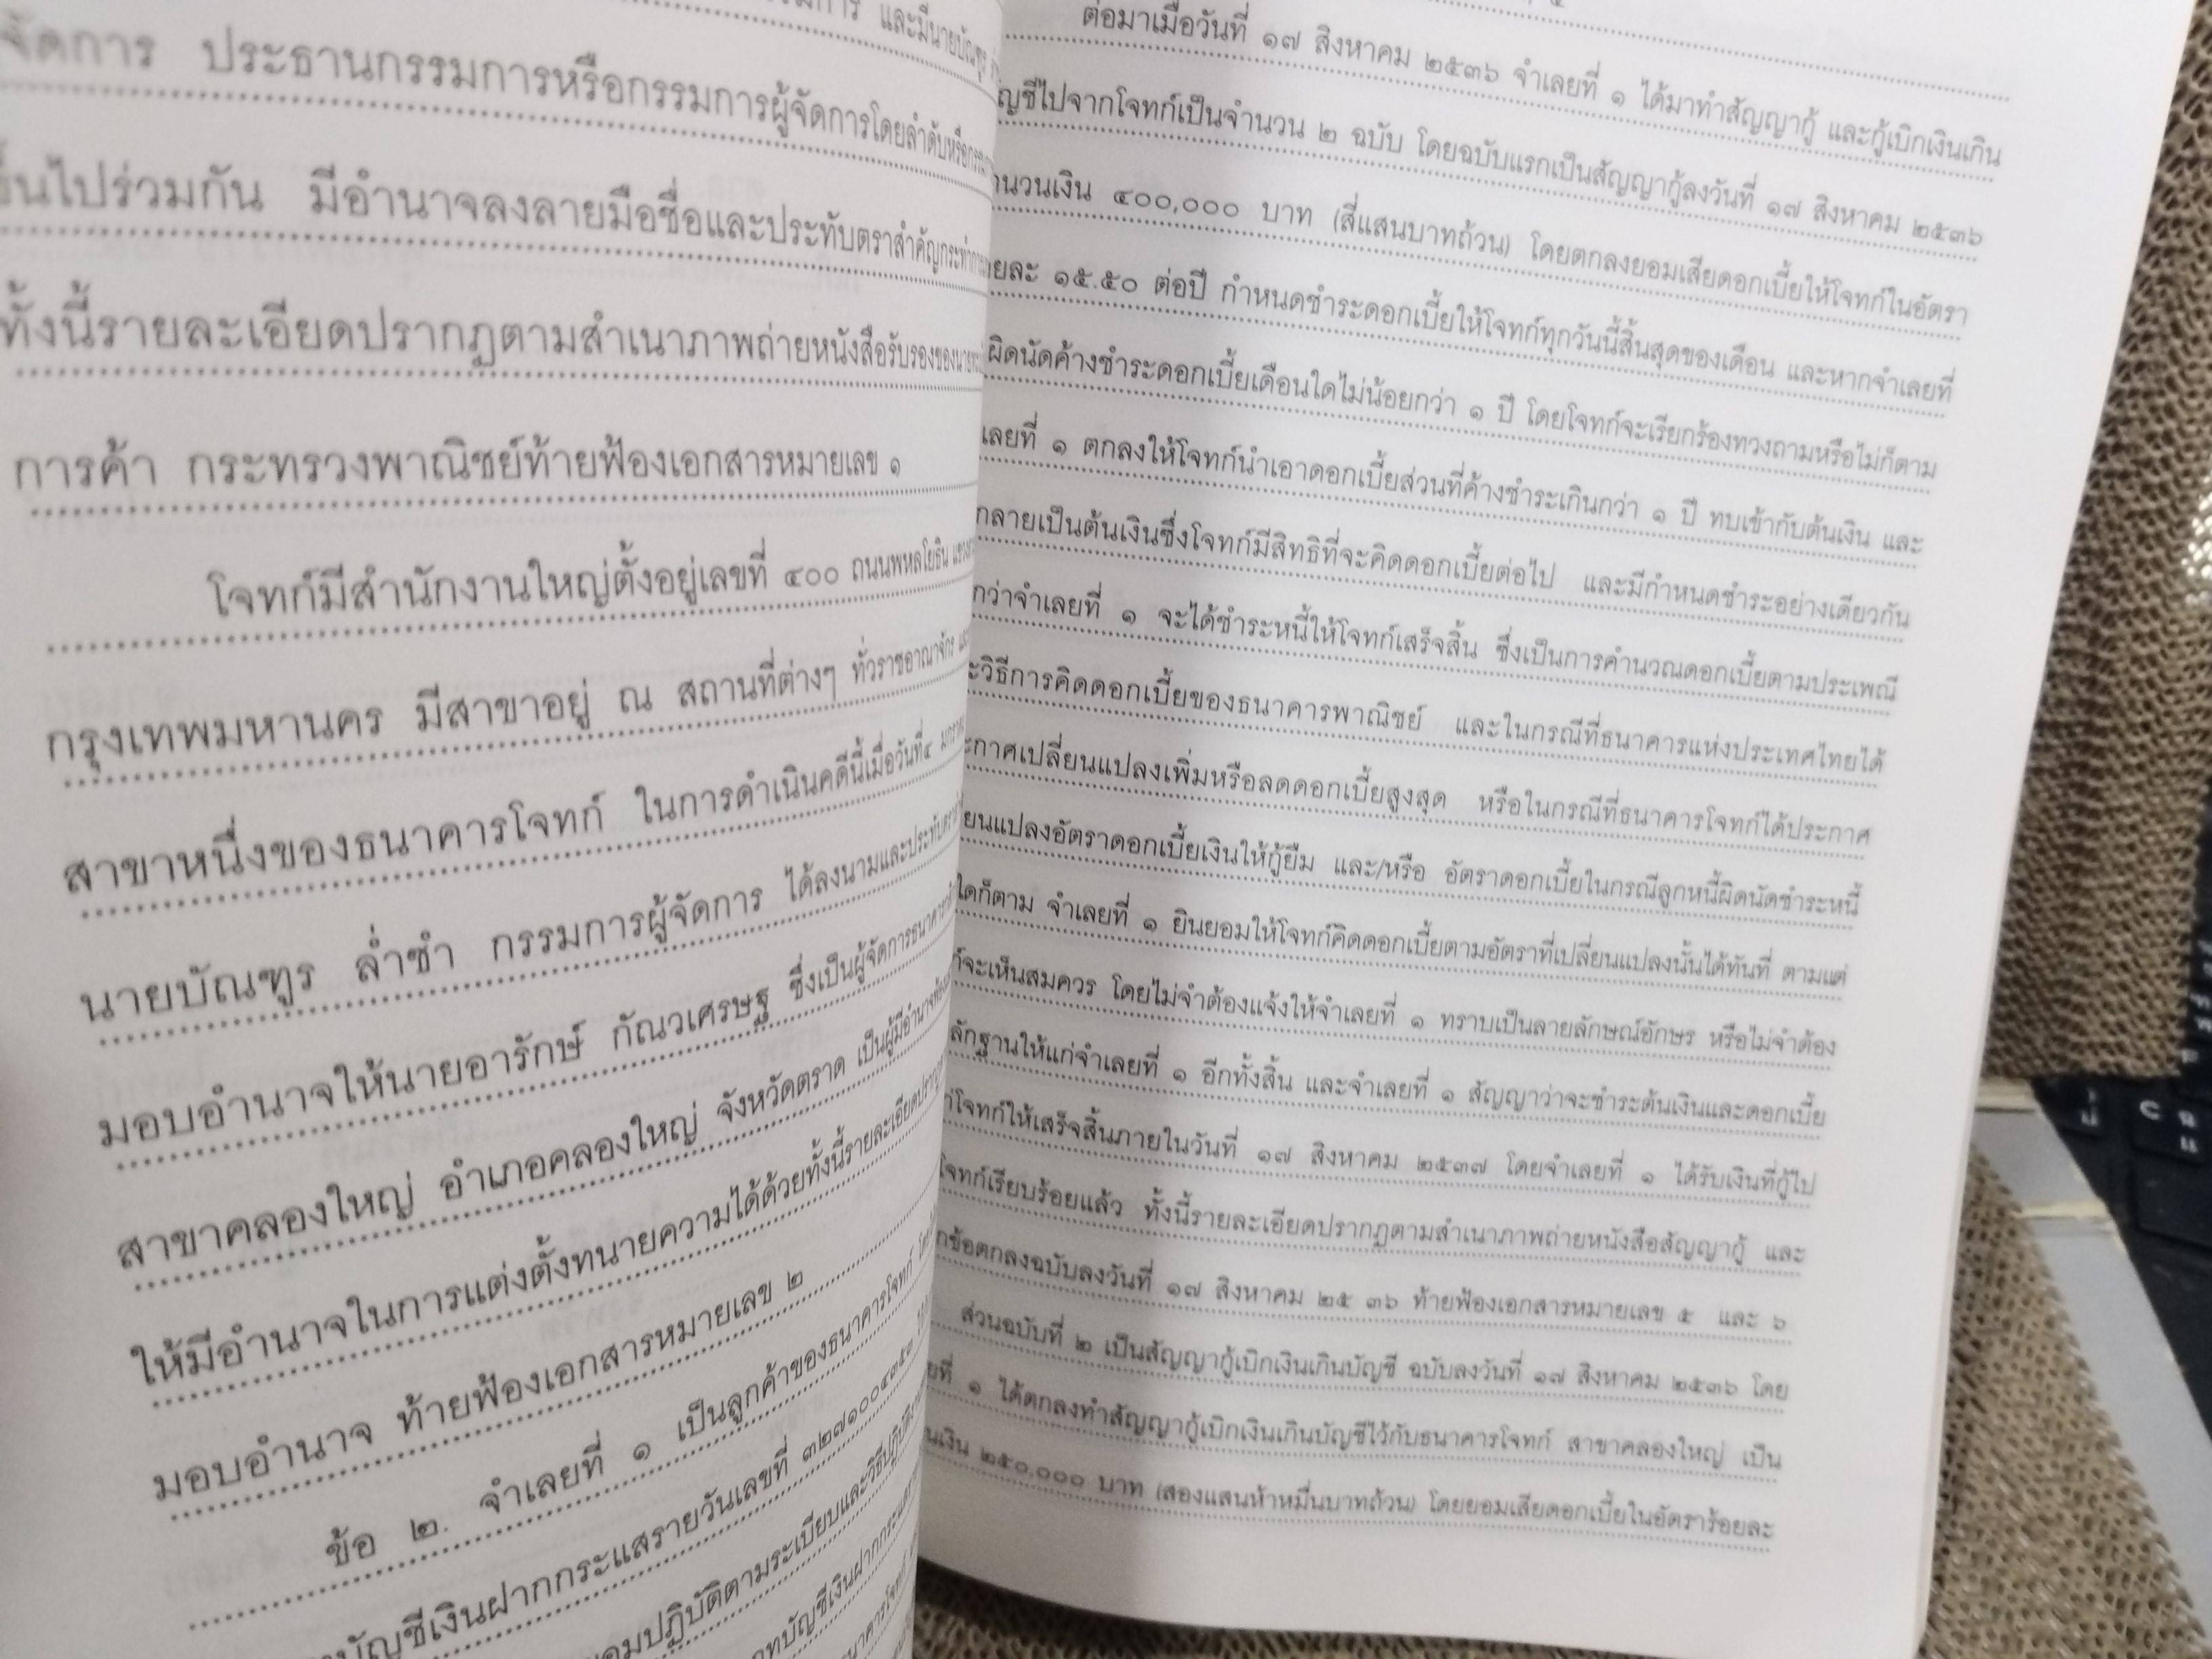 จัดการ ประธานกรรมการหรือกรรมการผู้จัดการโดยลำดับหรือ
ขึ้นไปร่วมกัน มีอำนาจลงลายมือชื่อและประทับตราสำคัญ
ทั้งนี้รายละเอียดปรากฏตามสำเนาภาพถ่ายหนังสือรับรองของ
การค้า กระทรวงพาณิชย์ท้ายฟ้องเอกสารหมายเลข ๑
โจทก์มีสำนักงานใหญ่ตั้งอยู่เลขที่ ๔๐๐ ถนนพหลโยธิน
กรุงเทพมหานคร มีสาขาอยู่ ณ สถานที่ต่างๆ ทั่วราชอาณาจักร
สาขาหนึ่งของธนาคารโจทก์ ในการดำเนินคดีนี้เมื่อวันที่๔
นายบัณฑูร ล่ำซำ กรรมการผู้จัดการ ได้ลงนามและประทับตรา
มอบอำนาจให้นายอารักษ์ กัณวเศรษฐ ซึ่งเป็นผู้จัดการธนาคาร
สาขาคลองใหญ่ อำเภอคลองใหญ่ จังหวัดตราด เป็นผู้มีอำนาจ
ให้มีอำนาจในการแต่งตั้งทนายความได้ด้วยทั้งนี้รายละเอียด
มอบอำนาจ ท้ายฟ้องเอกสารหมายเลข ๒
ข้อ ๒. จำเลยที่ ๑ เป็นลูกค้าของธนาคารโจทก์
บัญชีเงินฝากกระแสรายวันเลขที่
ปฏิบัติตามระเบียบและวิธีปฏิบัติ
บัญชีเงินฝากกระแส
ต่อมาเมื่อวันที่ ๑๗ สิงหาคม ๒๕๓๖ จำเลยที่ ๑ ได้มาทำสัญญากู้ และกู้เบิกเงินเกิน
ไปจากโจทก์เป็นจำนวน ๒ ฉบับ โดยฉบับแรกเป็นสัญญากู้ลงวันที่ ๑๗ สิงหาคม ๒๕๓๖
เงิน ๔๐๐,๐๐๐ บาท (สี่แสนบาทถ้วน) โดยตกลงยอมเสียดอกเบี้ยให้โจทก์ในอัตรา
๑๕.๕๐ ต่อปี กำหนดชำระดอกเบี้ยให้โจทก์ทุกวันนี้สิ้นสุดของเดือน และหากจำเลยที่
ผิดนัดค้างชำระดอกเบี้ยเดือนใดไม่น้อยกว่า ๑ ปี โดยโจทก์จะเรียกร้องทวงถามหรือไม่ก็ตาม
เลยที่ ๑ ตกลงให้โจทก์นำเอาดอกเบี้ยส่วนที่ค้างชำระเกินกว่า ๑ ปี ทบเข้ากับต้นเงิน และ
กลายเป็นต้นเงินซึ่งโจทก์มีสิทธิที่จะคิดดอกเบี้ยต่อไป และมีกำหนดชำระอย่างเดียวกัน
กว่าจำเลยที่ ๑ จะได้ชำระหนี้ให้โจทก์เสร็จสิ้น ซึ่งเป็นการคำนวณดอกเบี้ยตามประเพณี
วิธีการคิดดอกเบี้ยของธนาคารพาณิชย์ และในกรณีที่ธนาคารแห่งประเทศไทยได้
กาศเปลี่ยนแปลงเพิ่มหรือลดดอกเบี้ยสูงสุด หรือในกรณีที่ธนาคารโจทก์ได้ประกาศ
ยนแปลงอัตราดอกเบี้ยเงินให้กู้ยืม และ/หรือ อัตราดอกเบี้ยในกรณีลูกหนี้ผิดนัดชำระหนี้
ใดก็ตาม จำเลยที่ ๑ ยินยอมให้โจทก์คิดดอกเบี้ยตามอัตราที่เปลี่ยนแปลงนั้นได้ทันที ตามแต่
จะเห็นสมควร โดยไม่จำต้องแจ้งให้จำเลยที่ ๑ ทราบเป็นลายลักษณ์อักษร หรือไม่จำต้อง
ลักฐานให้แก่จำเลยที่ ๑ อีกทั้งสิ้น และจำเลยที่ ๑ สัญญาว่าจะชำระต้นเงินและดอกเบี้ย
โจทก์ให้เสร็จสิ้นภายในวันที่ ๑๗ สิงหาคม ๒๕๓๗ โดยจำเลยที่ ๑ ได้รับเงินที่กู้ไป
โจทก์เรียบร้อยแล้ว ทั้งนี้รายละเอียดปรากฏตามสำเนาภาพถ่ายหนังสือสัญญากู้ และ
ข้อตกลงฉบับลงวันที่ ๑๗ สิงหาคม ๒๕ ๓๖ ท้ายฟ้องเอกสารหมายเลข ๕ และ ๖
ส่วนฉบับที่ ๒ เป็นสัญญากู้เบิกเงินเกินบัญชี ฉบับลงวันที่ ๑๗ สิงหาคม ๒๕๓๖ โดย
ที่ ๑ ได้ตกลงทำสัญญากู้เบิกเงินเกินบัญชีไว้กับธนาคารโจทก์ สาขาคลองใหญ่ เป็น
เงิน ๒๕๐,๐๐๐ บาท (สองแสนห้าหมื่นบาทถ้วน) โดยยอมเสียดอกเบี้ยในอัตราร้อยละ